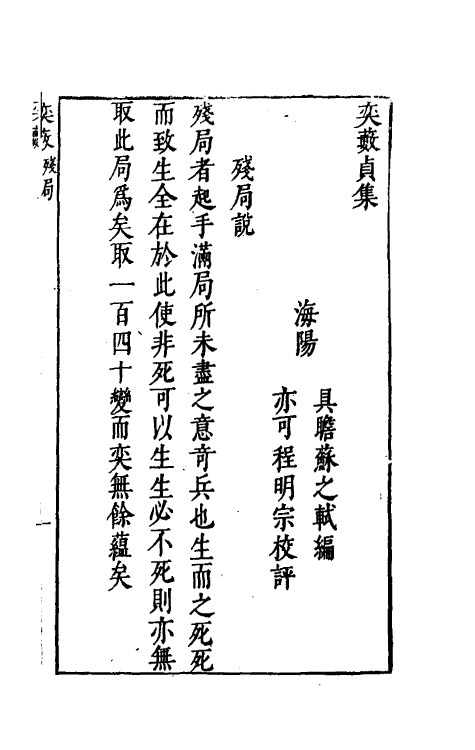 奕藪貞集
海陽
具瞻蘇之軾編
亦可程明宗校評
殘局說
殘局者起手滿局所未盡之意竒兵也生而之死死
而致生全在於此使非死可以生生必不死則亦無
取此局爲矣取一百四十變而奕無餘蘊矣
殘局
一